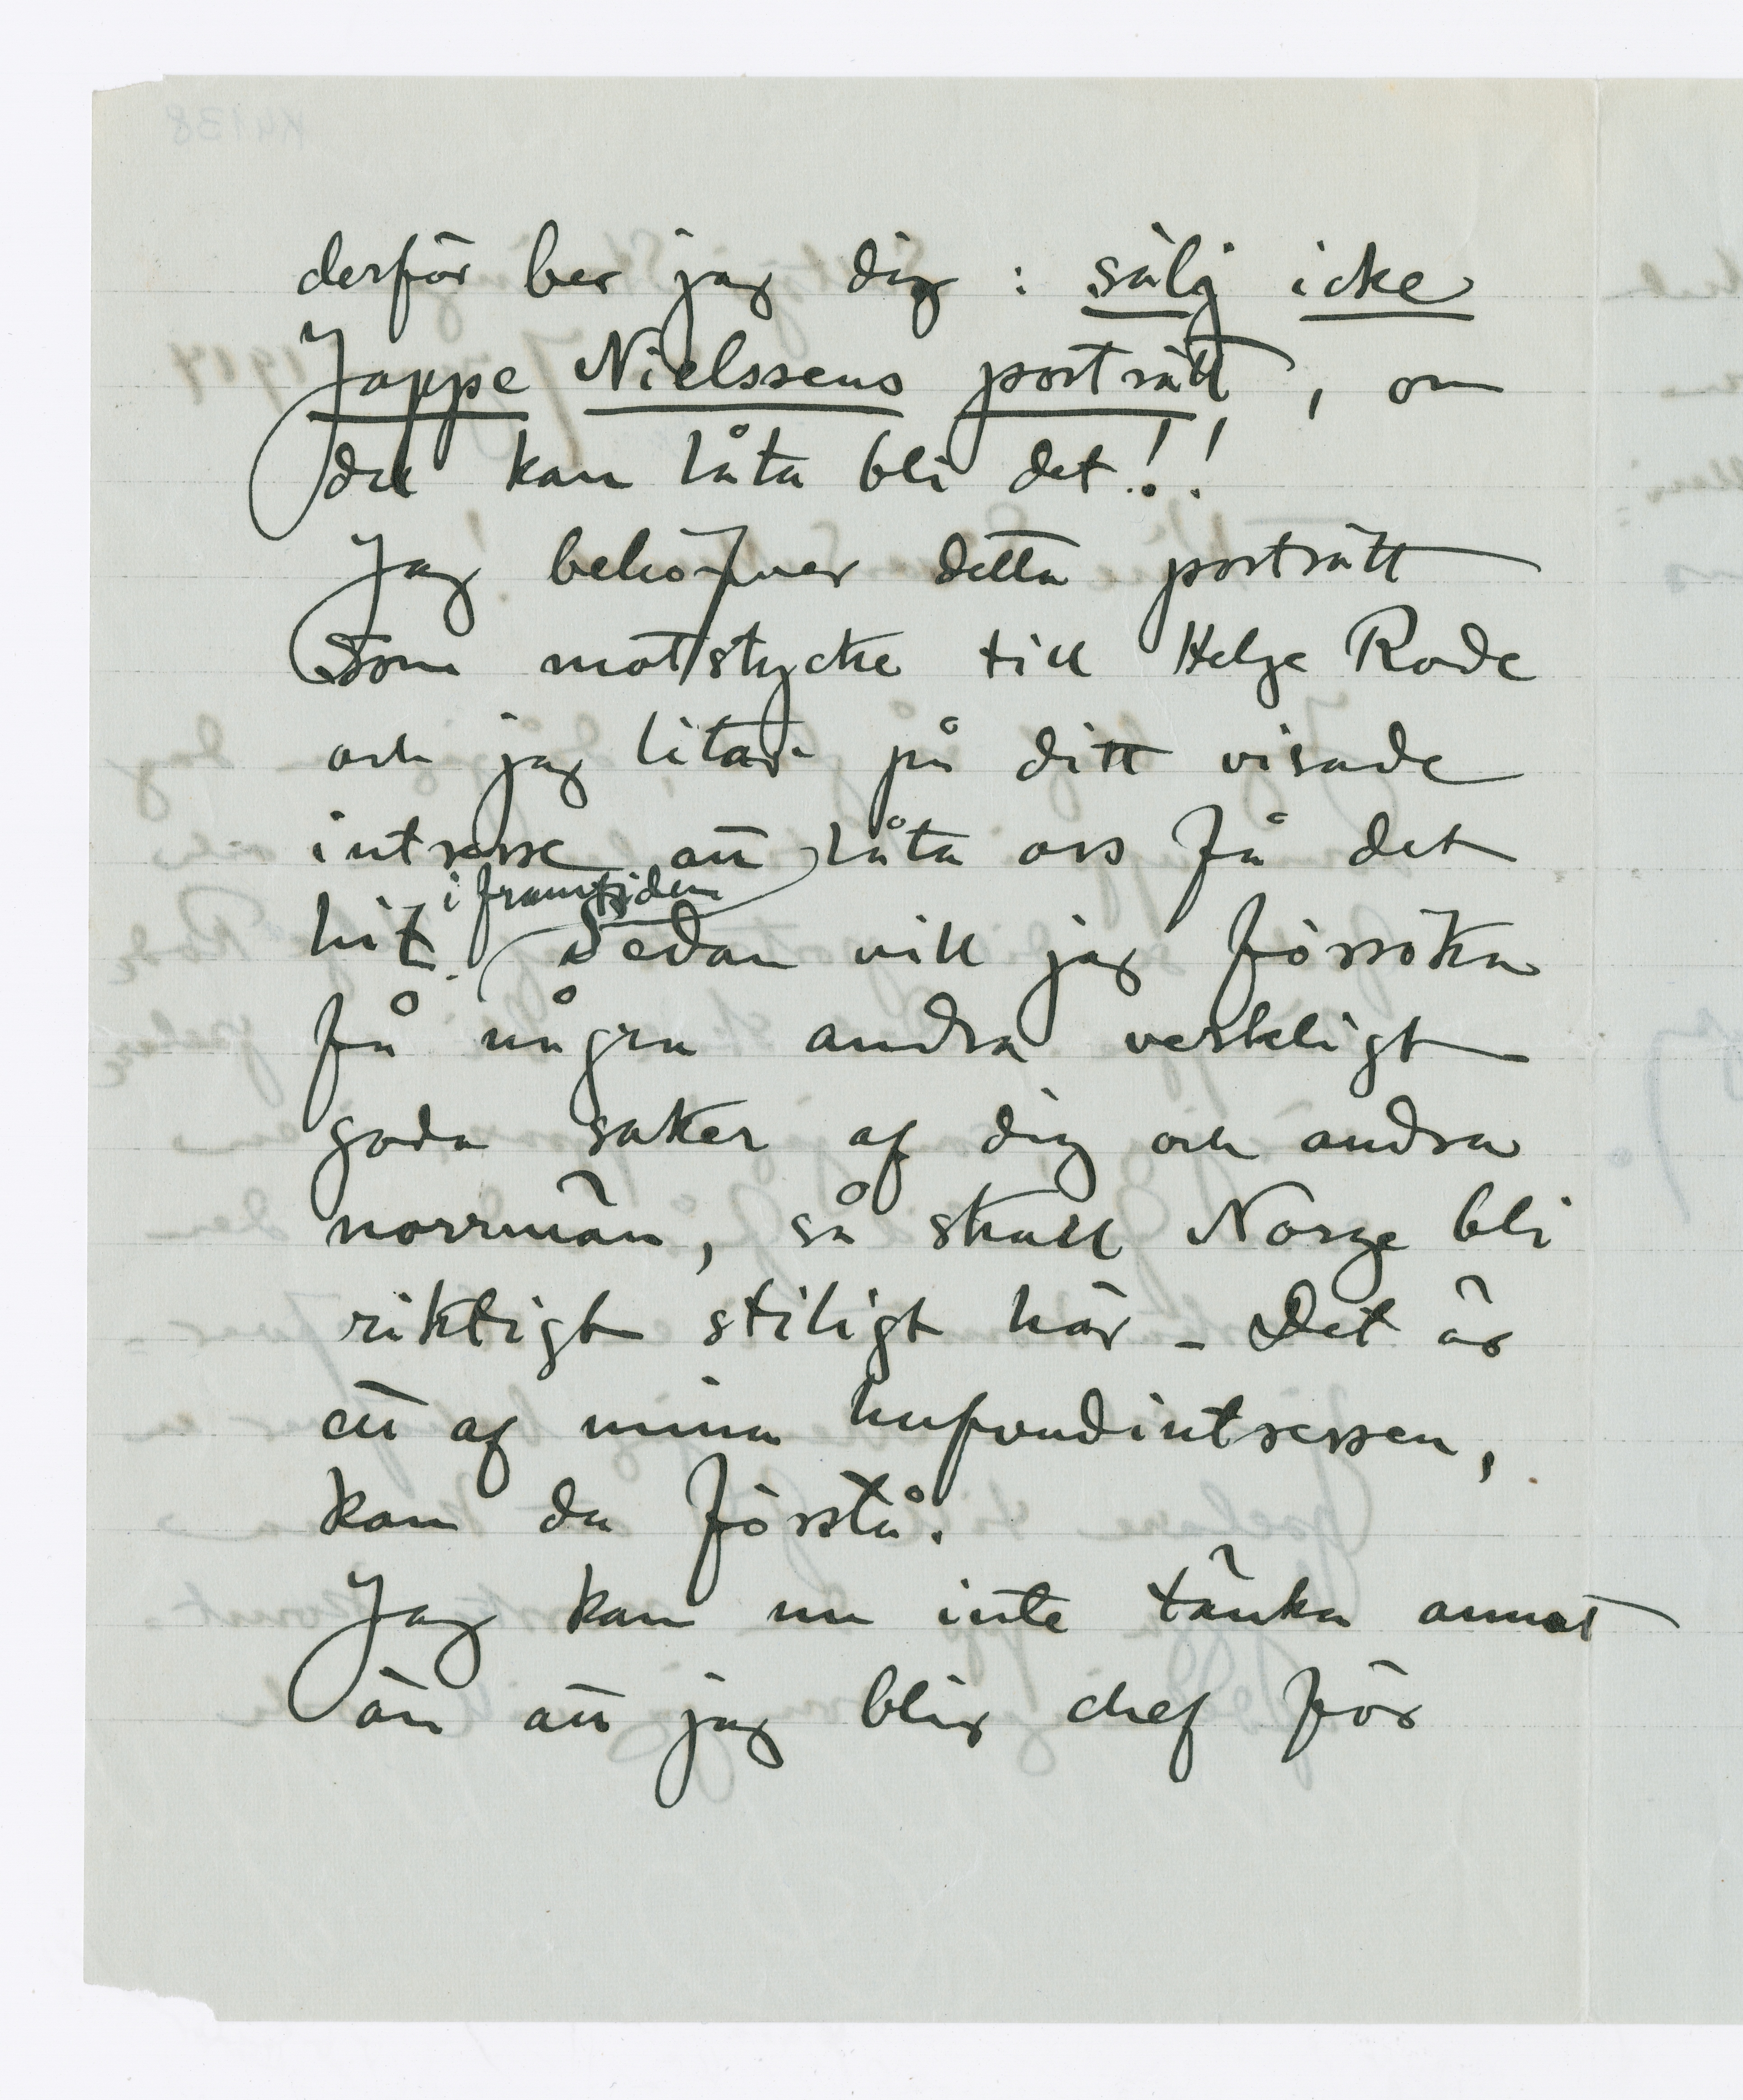 derför ber jag dig : sälj icke
Jappe Nielssens porträtt, om
du kan låta bli det!!
Jag behöfver detta porträtt
som motstycke till Helge Rode
och jag litar på ditt visade
intresse att låta oss få det
i framtiden
hit. Sedan vill jag försöka
få några andra verkligt
goda saker af dig och andra
norrmän, så skall Norge bli
riktigt stiligt här – Det är
ett af mina hufvudintressen,
kan du förstå.
Jag kan nu inte tänka annat
än att jag blir chef för